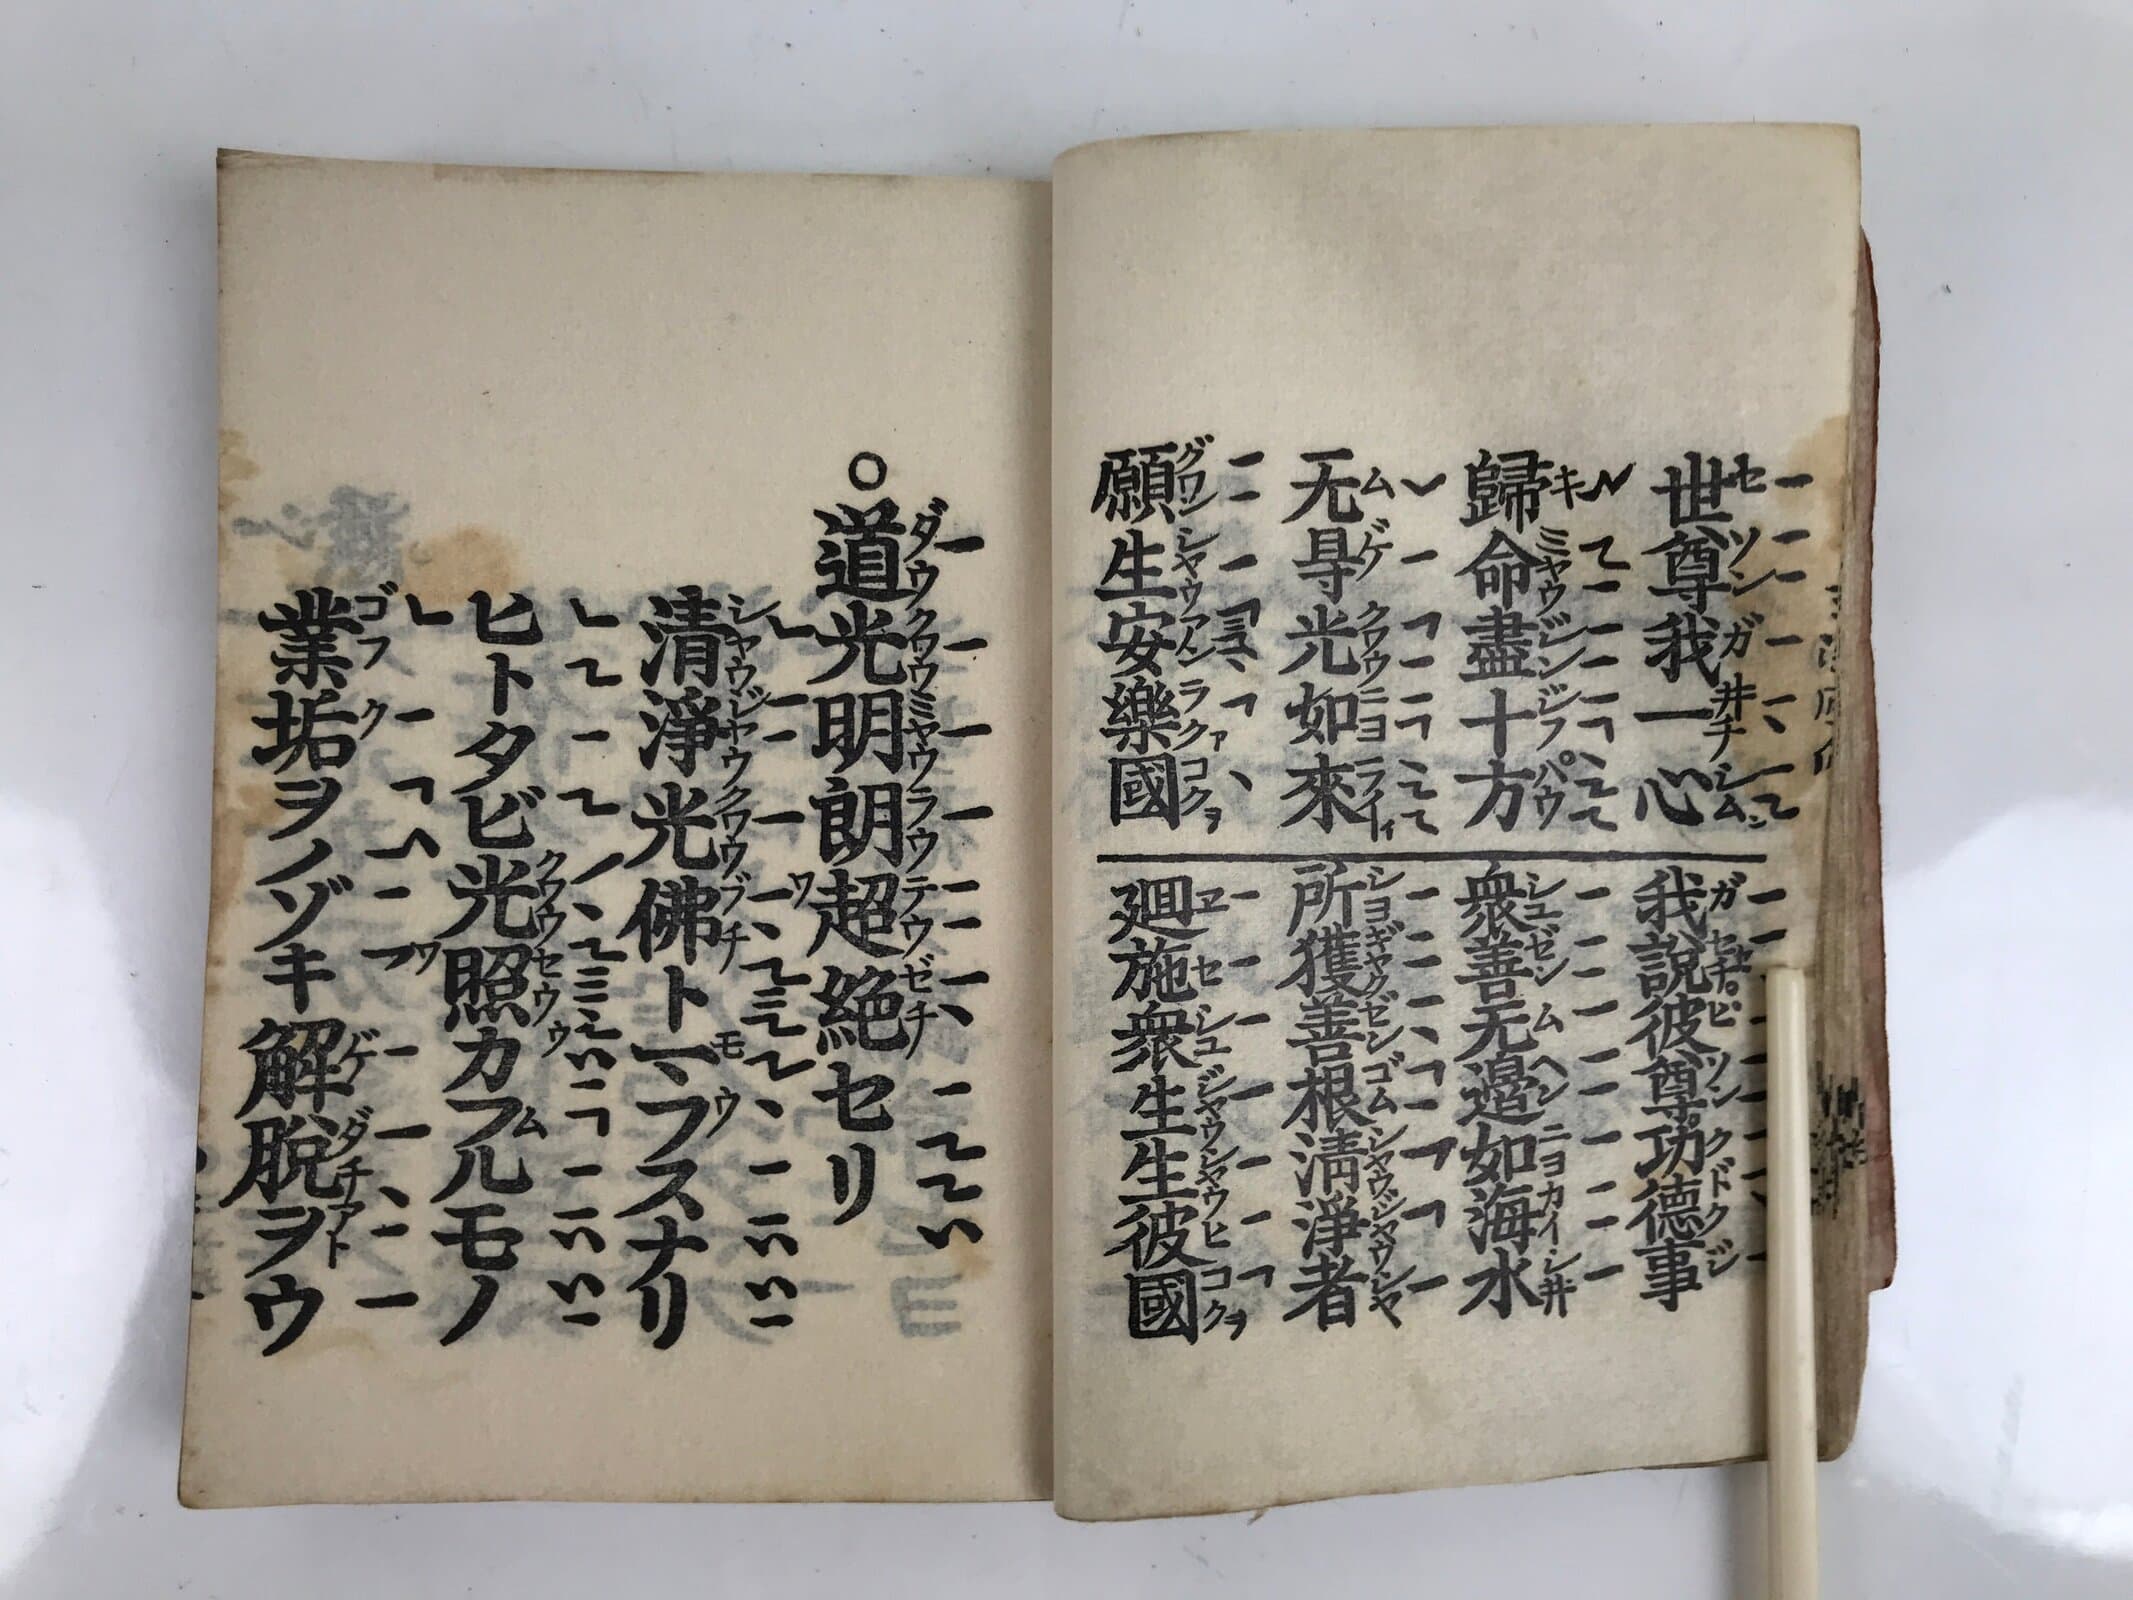 世尊我一心
歸命盡十方
无㝵光如來
願生安樂國
我說彼尊功德事
衆善无邊如海水
所獲善根清淨者
廻施衆生生彼國
○道光明朗超絶セリ
清淨光佛トマフスナリ
ヒトタビ光照カフルモノ
業垢ヲノゾキ解脱ヲウ